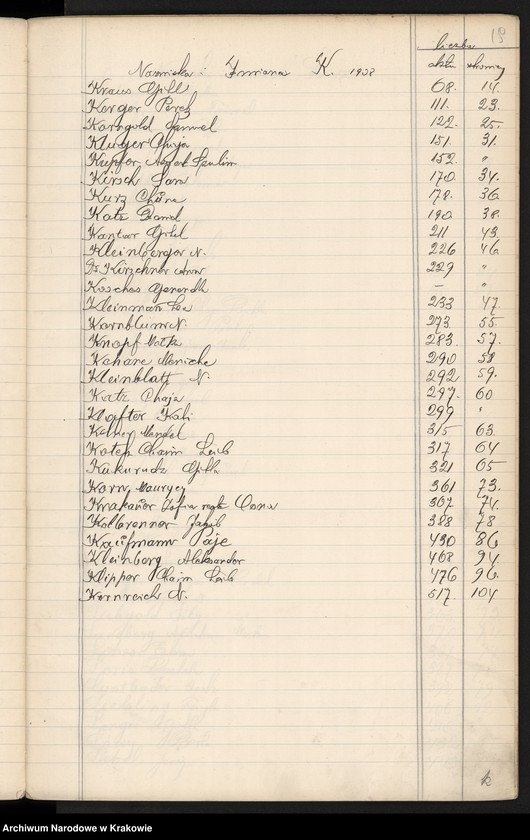 18
liczba
Nazwiska i Imiona K. 1938 aktu strony
Kraus Gitl 68. 14.
Korger Perel 111. 23.
Korngold Samuel 122. 25.
Kluger Chaja 151. 31.
Kupfer 152. "
Kirsch Jan 170 34.
Kurz Chana 178. 36
Katz Dawid 190 38.
Kantor Gitel 211 43.
Kleinberger N. 226 46
Dr. Kirschner 229 "
Kosches — "
Kleinman Lea 233 47.
Kornblum N. 273. 55.
Knopf Motke 283. 57.
Kohane Meniche 290 58
Kleinblatt N. 292 59.
Katz Chaja 297. 60
Klafter Kali 299 "
Mendel 315 63
Chaim Leib 317 64
Kukurudz Gitla 321 65
Korn Maurycy 361 73.
367 74.
Kolbrenner Jakób 388 78
Kaufmann Paje 430 86
Kleinberg Aleksander 468 94.
Klipper Chaim Leib 476 96.
Kornreich N. 517. 104
k
Archiwum Narodowe w Krakowie